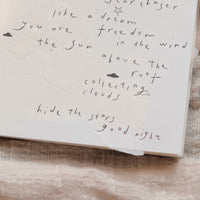 star chaser
like a dream
you are freedom
the sun in the wind
above the
roof
collecting
clouds
hide the stars
good night